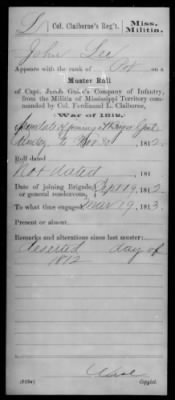 L
Col. Claiborne's Reg't.
Miss. Militia.
John Lee
Appears with the rank of Pvt on a
Muster Roll
of Capt. Company of Infantry,
from the Militia of Mississippi Territory com-
manded by Col. Ferdinand L. Claiborne,
War of 1812,
to Nov 30 1812.
Roll dated
Not dated , 181
Date of joining Brigade, or general rendezvous, Sept 19, 1812
To what time engaged, Mar 19, 1813.
Present or absent,
Remarks and alterations since last muster:
deserted day of
1812
Copyist.